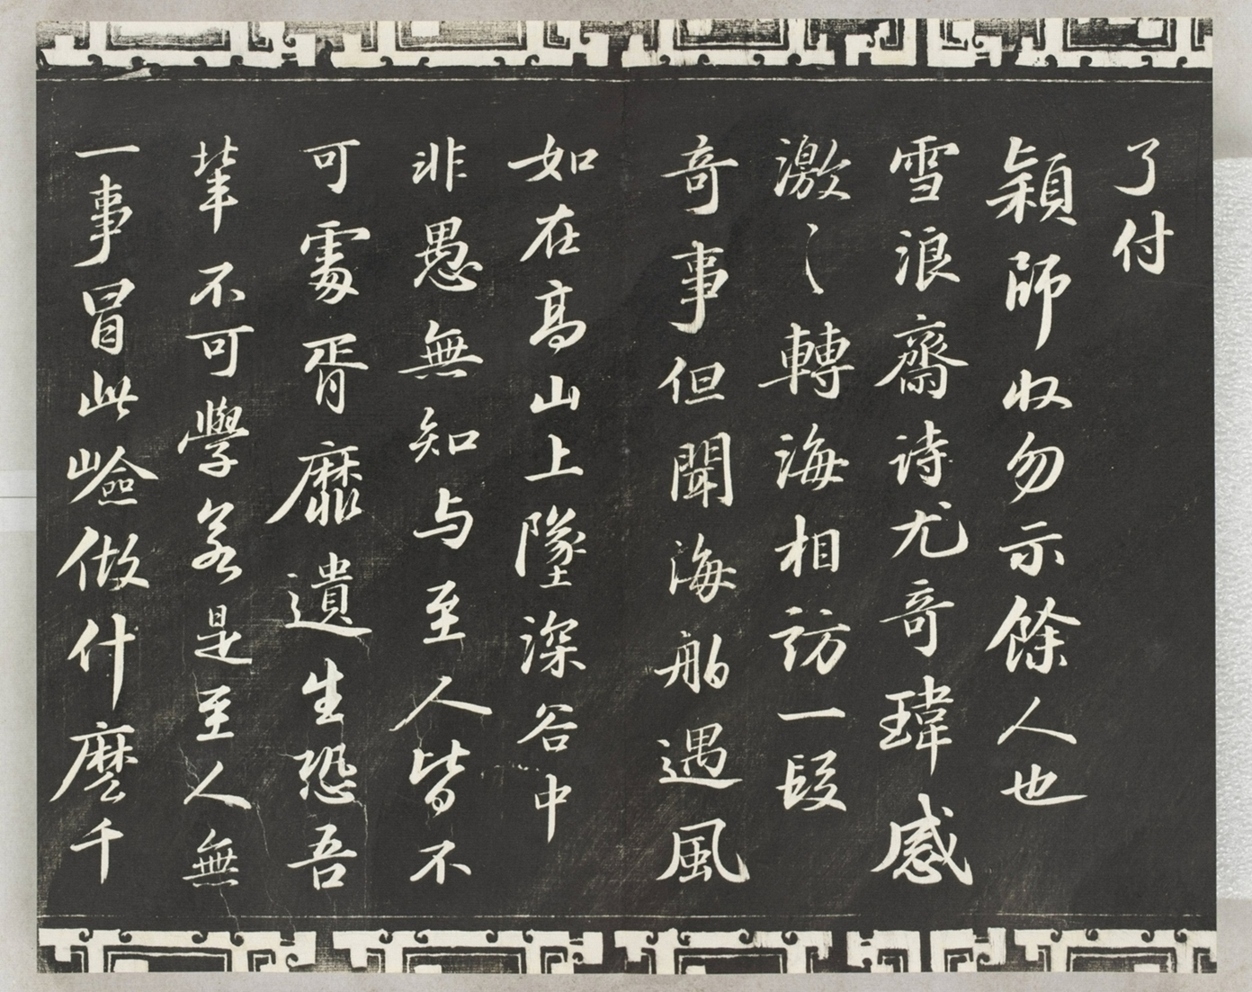 了付
穎師收勿示餘人也
雪浪齋詩尤奇瑋感
激〻轉海相訪一段
奇事但聞海舶遇風
如在高山上墜深谷中
非愚無知与至人皆不
可處胥靡遺生恐吾
輩不可學若是至人無
一事冒此嶮做什麼千